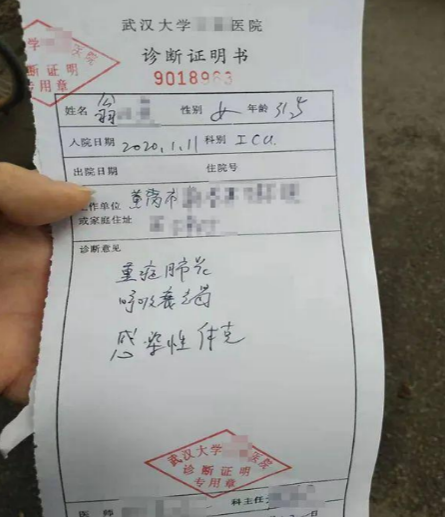 武汉大学 医院
诊断证明书
9018963
武汉大学 医院
诊断证明
专用章
姓名 翁 性别 女 年龄 31岁
入院日期 2020.1.11 科别 ICU
出院日期 住院号
工作单位
或家庭住址
市
诊断意见
重症肺炎
呼吸衰竭
感染性休克
武汉大学 医院
诊断证明
专用章
医师 科主任